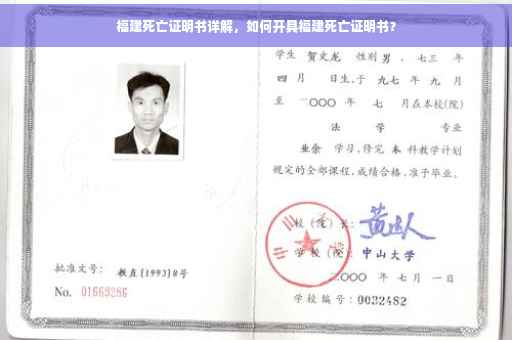 福建死亡证明书详解，如何开具福建死亡证明书？
学生 贺文龙 性别 男，七三 年
四 月 日生，于 九七 年 九 月
至 二〇〇〇 年 七 月在本校(院)
法 学 专业
业余 学习，修完 本 科教学计划
规定的全部课程，成绩合格，准予毕业。
校(院)长：
学校(院)：中山大学
二〇〇〇 年 七 月 一 日
批准文号：教直(1993)8号
No. 01669286
学校编号：0032482